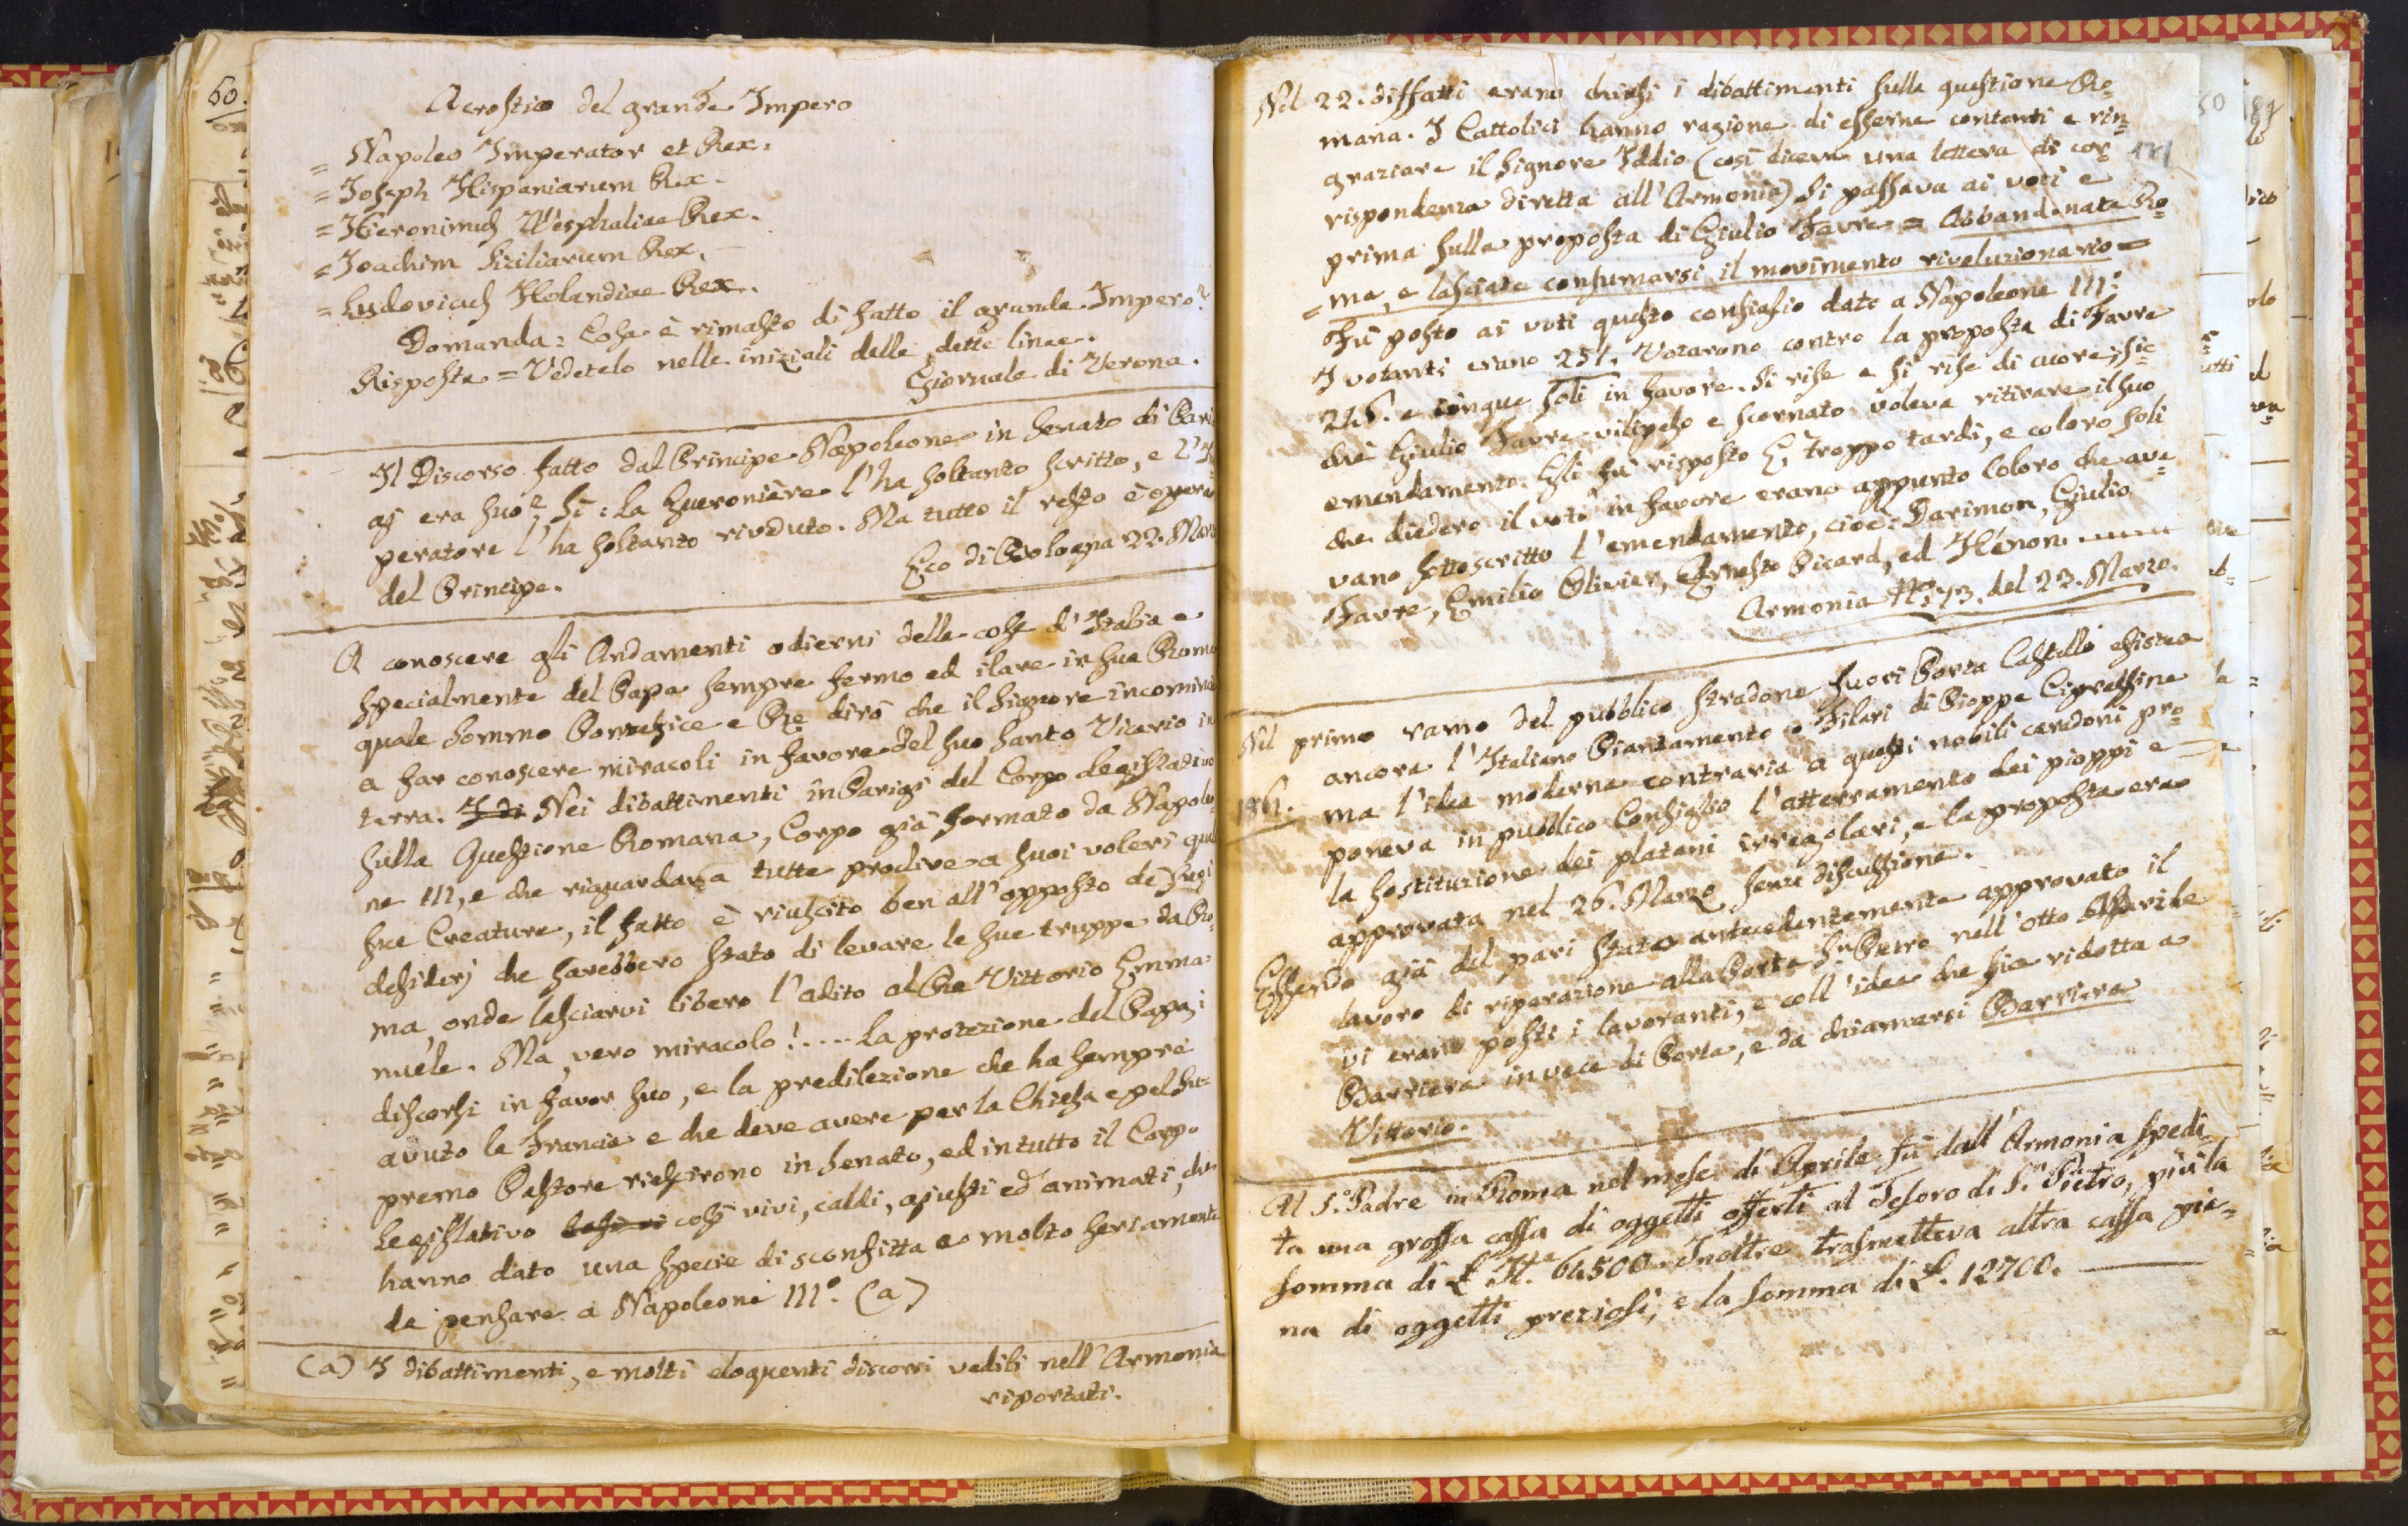 60.
Acrostico del grande Impero
= Napoleo Imperator et Rex.
= Joseph Hispaniarum Rex.
= Hieronimus Wesphaliae Rex.
= Joachim Siciliarum Rex.
= Ludovicus Holandiae Rex.
Domanda: Cosa è rimasto di fatto il grande Impero?
Risposta = Vedetelo nelle iniziali delle dette linee.
Giornale di Verona.
Il Discorso fatto dal Principe Napoleone in Senato di Pari
gi era suo? Sì: La Gueronière l'ha soltanto scritto, e l'Im
peratore l'ha soltanto rivduto. Ma tutto il resto è opera
del Principe.
Eco di Bologna 22. Marz
A conoscere gli Andamenti odierni delle cose d'Italia e
specialmente del Papa sempre fermo ed ilare in sua Roma
quale Sommo Pontefice e Re dirò che il Signore incomincia
a far conoscere miracoli in favore del suo Santo Vicario in
terra. Nei dibattimenti in Parigi del Corpo Legislativo
sulla Questione Romana, Corpo già formato da Napoleo-
ne III, e che riguardava tutte proclive a suoi voleri quali
sue Creature, il fatto è riuscito ben all'opposto de suoi
desiderj che sarebbero stato di levare le sue truppe da Ro-
ma, onde lasciarvi libero l'adito al Re Vittorio Emma=
nuele. Ma, vero miracolo!.... La protezione del Papa, i
discorsi in favor suo, e la predilezione che ha sempre
avuto la Francia e che deve avere per la Chiesa e pel Su=
premo Pastore riescirono in Senato, ed in tutto il Corpo
Legislativo così vivi, caldi, giusti ed animati, che
hanno dato una specie di sconfitta e molto seriamente
da pensare a Napoleone III°. (a)
(a) I dibattimenti, e molti eloquenti discorsi vedili nell'Armonia
riportati.
Nel 22. diffatti erano chiusi i dibattimenti sulla questione Ro=
mana. I Cattolici hanno ragione di esserne contenti e rin=
graziare il Signore Iddio (così diceva una lettera di cor=
rispondenza diretta all'Armonia) Si passava ai voti e
prima sulla proposta di Giulio Favre = Abbandonate Ro=
= ma, e lasciate consumarsi il movimento rivoluzionario =
Fu posto ai voti questo consiglio dato a Napoleone III:
I votanti erano 251. Votarono contro la proposta di Favre
246. e cinque soli in favore. Si rise e si rise di cuore; sic=
chè Giulio Favre vilipeso e scornato voleva ritirare il suo
emendamento. Gli fu risposto È troppo tardi, e coloro soli
che diedero il voto in favore erano appunto coloro che ave=
vano sottoscritto l'emendamento, cioè: Darimon, Giulio
Favre, Emilio Olivier, Ernesto Picard, ed Hénon.
Armonia N° 73. del 23. Marzo.
Nel primo ramo del pubblico stradone fuori Porta Castello esistea
ancora l'Italiano Piantamento o Filari di Pioppe Cipressine
1861. ma l'idea moderna contraria a questi nobili candoni pro=
poneva in pubblico Consiglio l'atterramento dei pioppi e
la sostituzione dei platani irregolari, e la proposta era
approvata nel 26. Marzo senza discussione.
Essendo già del pari stato antecedentemente approvato il
lavoro di riparazione alla Porta S. Pietro nell'otto Aprile
vi erano posti i lavoranti, e coll'idea che sia ridotta a
Barriera invece di Porta, e da chiamarsi Barriera
Vittorio.
Al S. Padre in Roma nel mese di Aprile fu dall'Armonia spedi=
ta una grossa cassa di oggetti offerti al Tesoro di S. Pietro, più la
somma di £ It.e 64500. Inoltre trasmetteva altra cassa pie=
na di oggetti preziosi, e la somma di £. 12700.